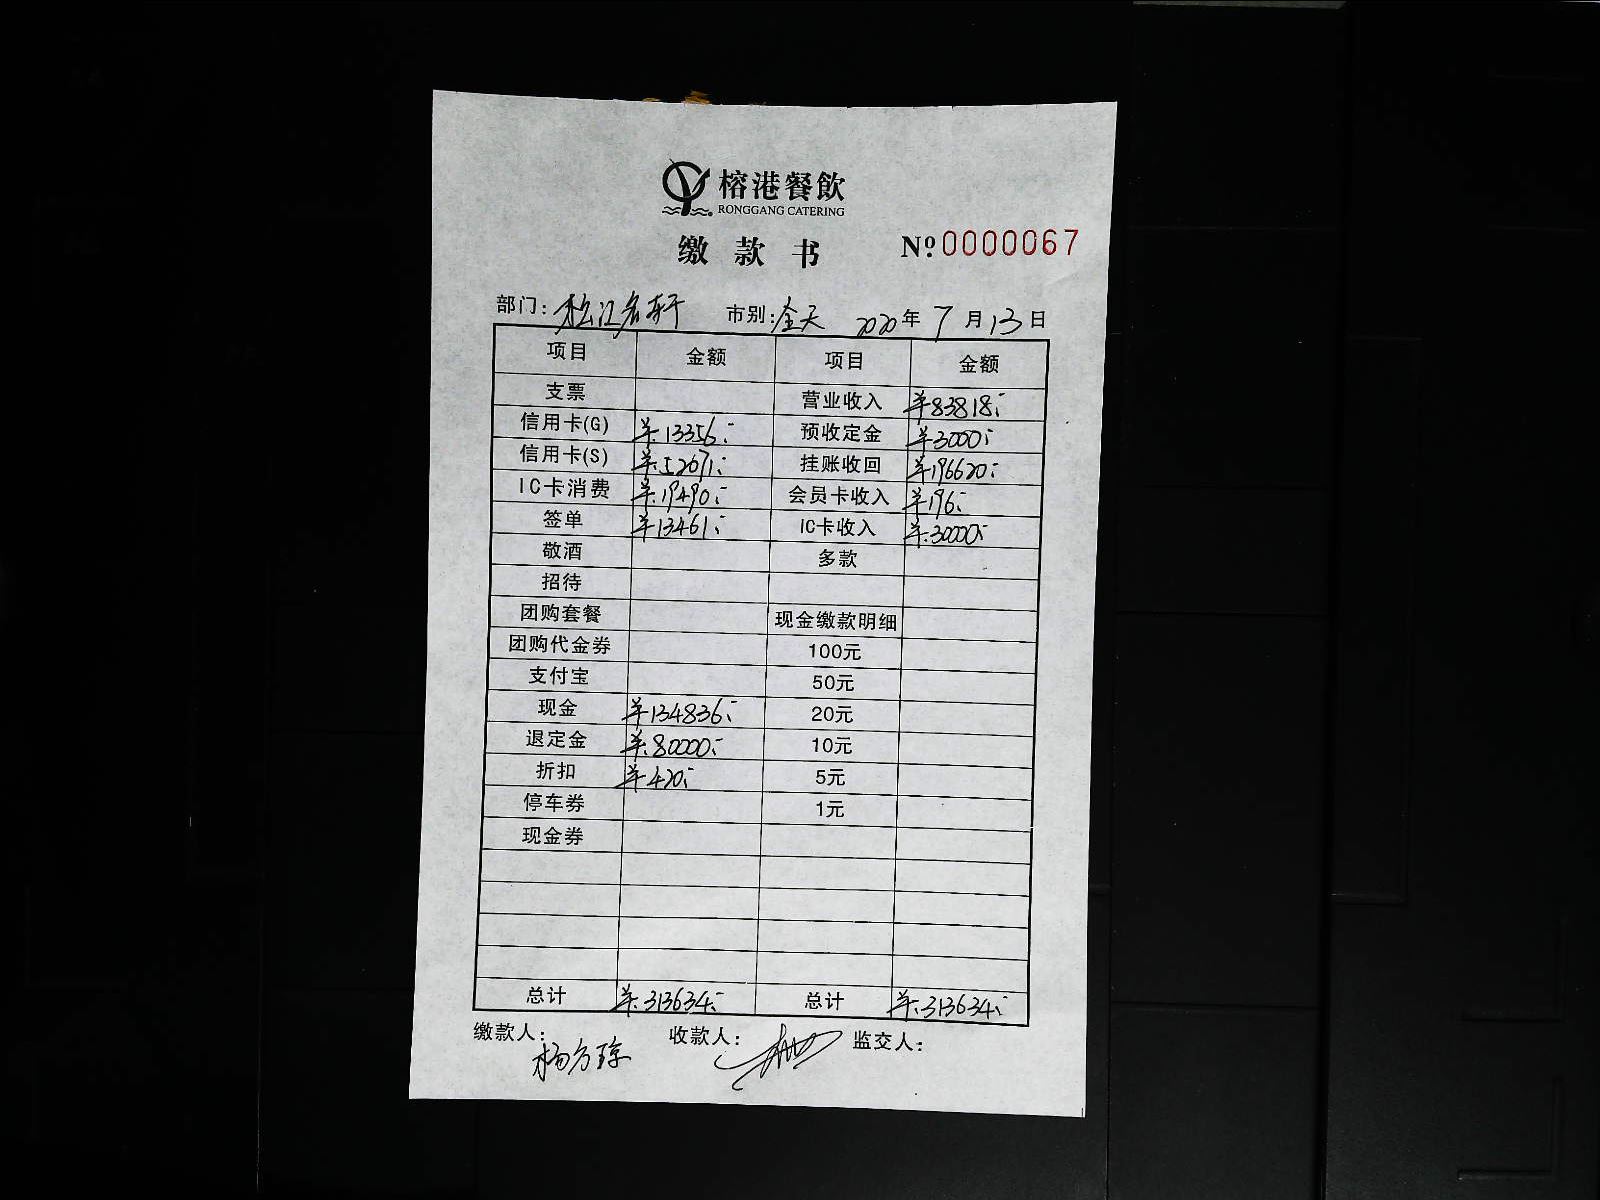 榕港餐飲
RONGGANG CATERING
缴款书 Nº 0000067
部门: 松江名轩 市别: 全天 2020年 7月13日
项目 金额 项目 金额
支票 营业收入 ¥83818:-
信用卡(G) ¥13356:- 预收定金 ¥3000:-
信用卡(S) ¥52071:- 挂账收回 ¥196620:-
IC卡消费 ¥19490:- 会员卡收入 ¥196:-
签单 ¥13461:- IC卡收入 ¥30000:-
敬酒 多款
招待
团购套餐 现金缴款明细
团购代金券 100元
支付宝 50元
现金 ¥134836:- 20元
退定金 ¥80000:- 10元
折扣 ¥420:- 5元
停车券 1元
现金券
总计 ¥313634:- 总计 ¥313634:-
缴款人: 杨方琼 收款人: 监交人: